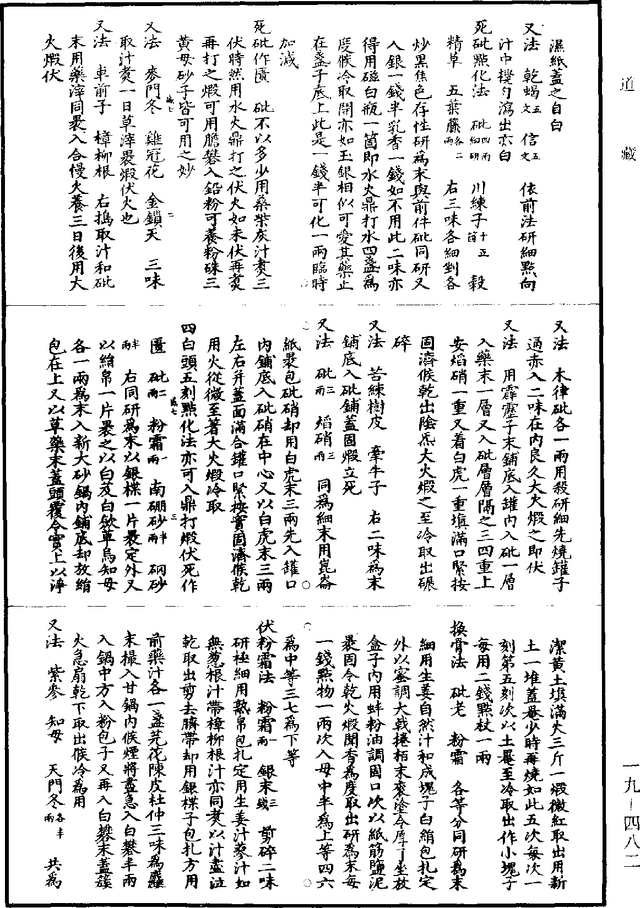 濕紙蓋之自白
又法　乾蝎五文　信五文　依前法研細點向
汁中撲勻瀉出亦白
死砒點化法　砒四兩細研　川練子十五箇　穀
精草　五葉藤各二兩　右三味各細剉各
炒黑焦色存性研為末與前件砒同研又
入銀一錢半乳香一錢如不用此二味亦
得用磁白瓶一箇即水火鼎打水四盞為
度候冷取開亦如玉銀相似可愛其藥止
在盞子底上此是一錢半可化一兩臨時
加減
死砒作匱　砒不以多少用桑柴灰汁煑三
伏時然用水火鼎打之伏火如未伏再煑
再打之煅可用膽礬入鉛粉可養粉硃三
黃母砂子皆可用之妙
又法　麥門冬　雞冠花　金鎖天　三味
取汁煑一日草滓褁煅伏火也
又法　車前子　樟柳根　右搗取汁和砒
末用藥滓同褁入合慢火養三日後用大
火煅伏
又法　木律砒各一兩用殺研細先燒罐子
通赤入二味在內良久大火煅之即伏
又法　用霹靂子末鋪底入罐內入砒一層
入藥末一層又入砒層層隔之三四重上
安焰硝一重又着白虎一重填滿口緊按
固濟候乾出陰炁大火煅之至冷取出碾
碎
又法　苦練樹皮　牽牛子　右二味為末
鋪底入砒鋪蓋固煅立死
又法　砒二兩　焰硝三兩　同為細末用崑崙
紙褁包砒硝却用白虎末三兩先入罐口
內鋪底入砒硝在中心又以白虎末三兩
左右并蓋面滿合罐口緊按實固濟候乾
用火從微至著大火煅冷取
四白頭五刻點化法亦可入鼎打煅伏死作
匱　砒二兩　粉霜一兩　南硼砂半兩　硇砂
半兩　右同研為末以銀楪一片褁定外又
以絹帛一片褁之以白芨白歛草烏知母
各一兩為末入新大砂鍋內鋪底却放絹
包在上又以草藥末蓋頭覆令實上以淨
潔黃土填滿火三斤一煅微紅取出用新
土一堆蓋𤇆少時再燒如此五次每次一
刻第五刻次以土𤇆至冷取出作小塊子
每用二錢點杖一兩
換骨法　砒老　粉霜　各等分同研為末
細用生姜自然汁和成塊子白絹包扎定
外以蜜調大戟捲栢末褁塗令厚了坐放
盒子內用蚌粉油調固口次以紙筋鹽泥
褁固令乾火煅聞香為度取出研為末每
一錢點物一兩次入母中半為上等四六
為中等三七為下等
伏粉霜法　粉霜一兩　銀末三錢　剪碎二味
研極細用熟帛包扎定用生姜汁蔘汁如
無葱根汁帶樟柳根汁亦同煑以汁盡泣
乾取出剪去臍帶却用銀楪子包扎方用
前藥汁各一盞芫花陳皮杜仲三味為麤
末撮入甘鍋內候煙將盡急入白礬半兩
入鍋中方入粉包子又再入白礬末蓋簇
火急扇乾下取出候冷為用
又法　紫參　知母　天門冬各半兩　共為
道藏
一九—四八二